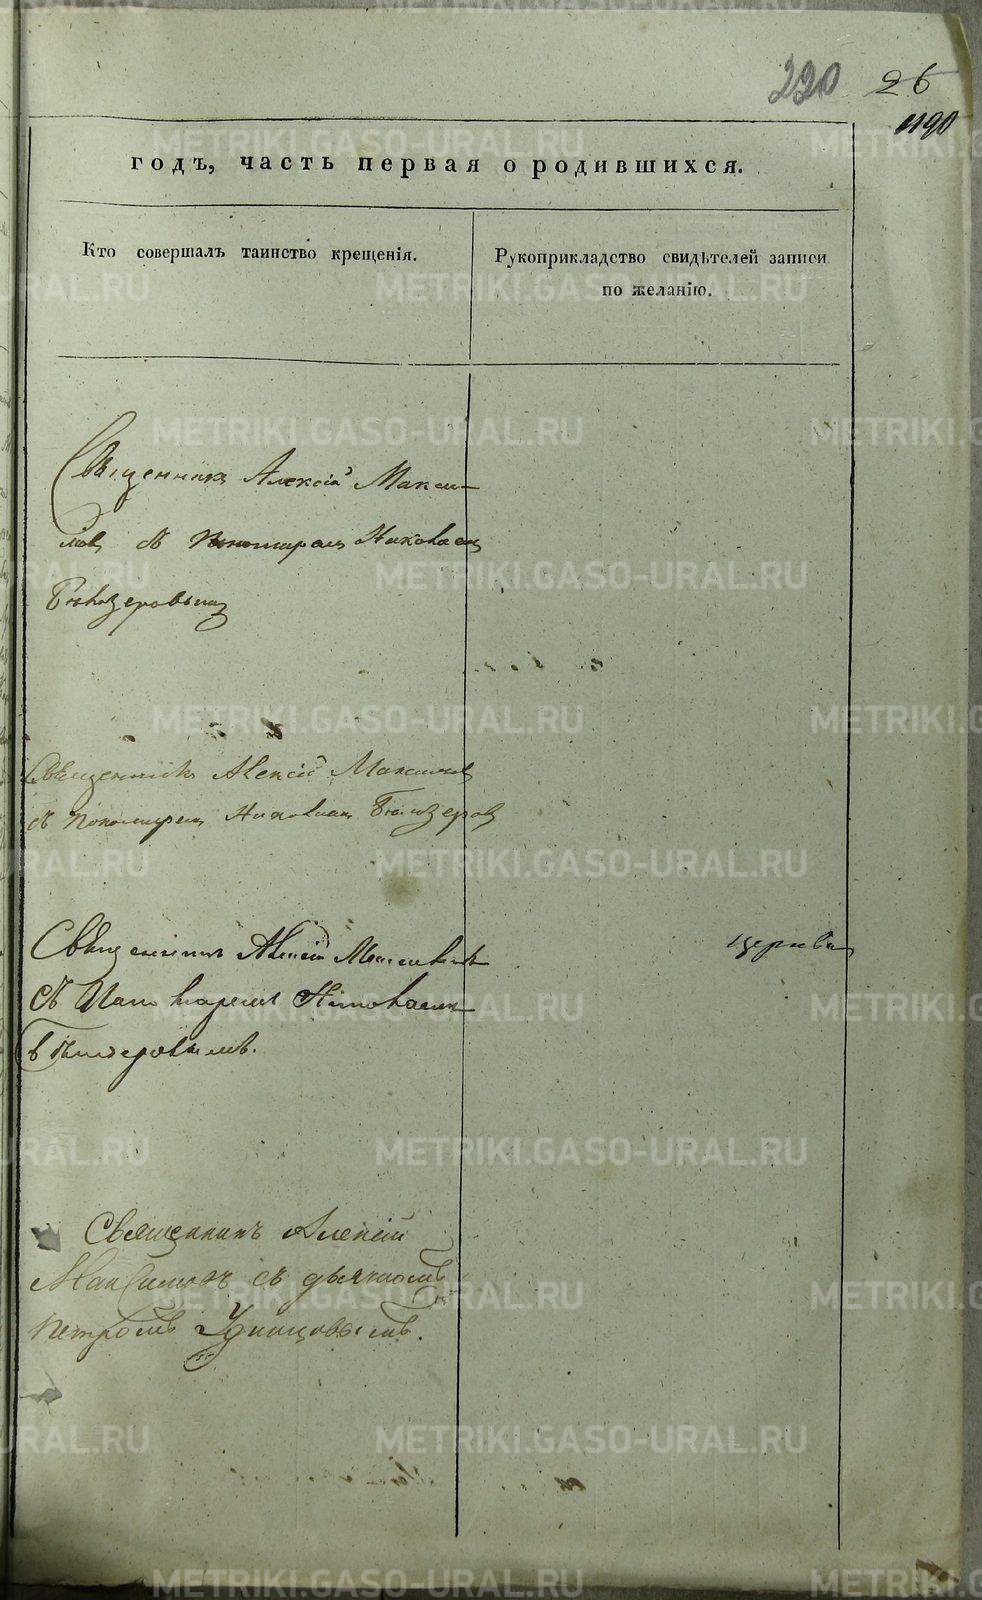 220 26
1190
годъ, часть первая о родившихся.
Кто совершалъ таинство крещенія.
Рукоприкладство свидѣтелей записи
по желанію.
Священникъ Алексій Макси-
мовъ съ Пономаремъ Николаемъ
Бѣлозеровымъ
Священникъ Алексій Максимовъ
съ Пономаремъ Николаемъ Бѣлозеров
Священникъ Алексій Максимовъ
церкви
съ Пономаремъ Николаемъ
Священникъ Алексій
Максимовъ съ дьячкомъ
Петромъ Удинцовымъ.
METRIKI.GASO-URAL.RU